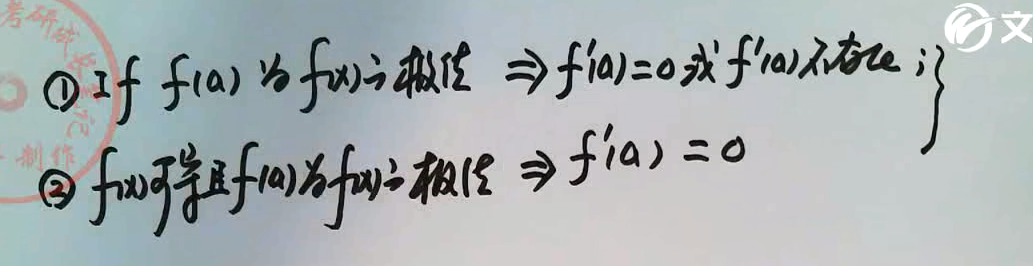 考研
制作
文
① If f(a) 为 f(x) 之极值 ⇒ f'(a)=0 或 f'(a) 不存在 ; }
② f(x)可导且f(a)为f(x)之极值 ⇒ f'(a) = 0